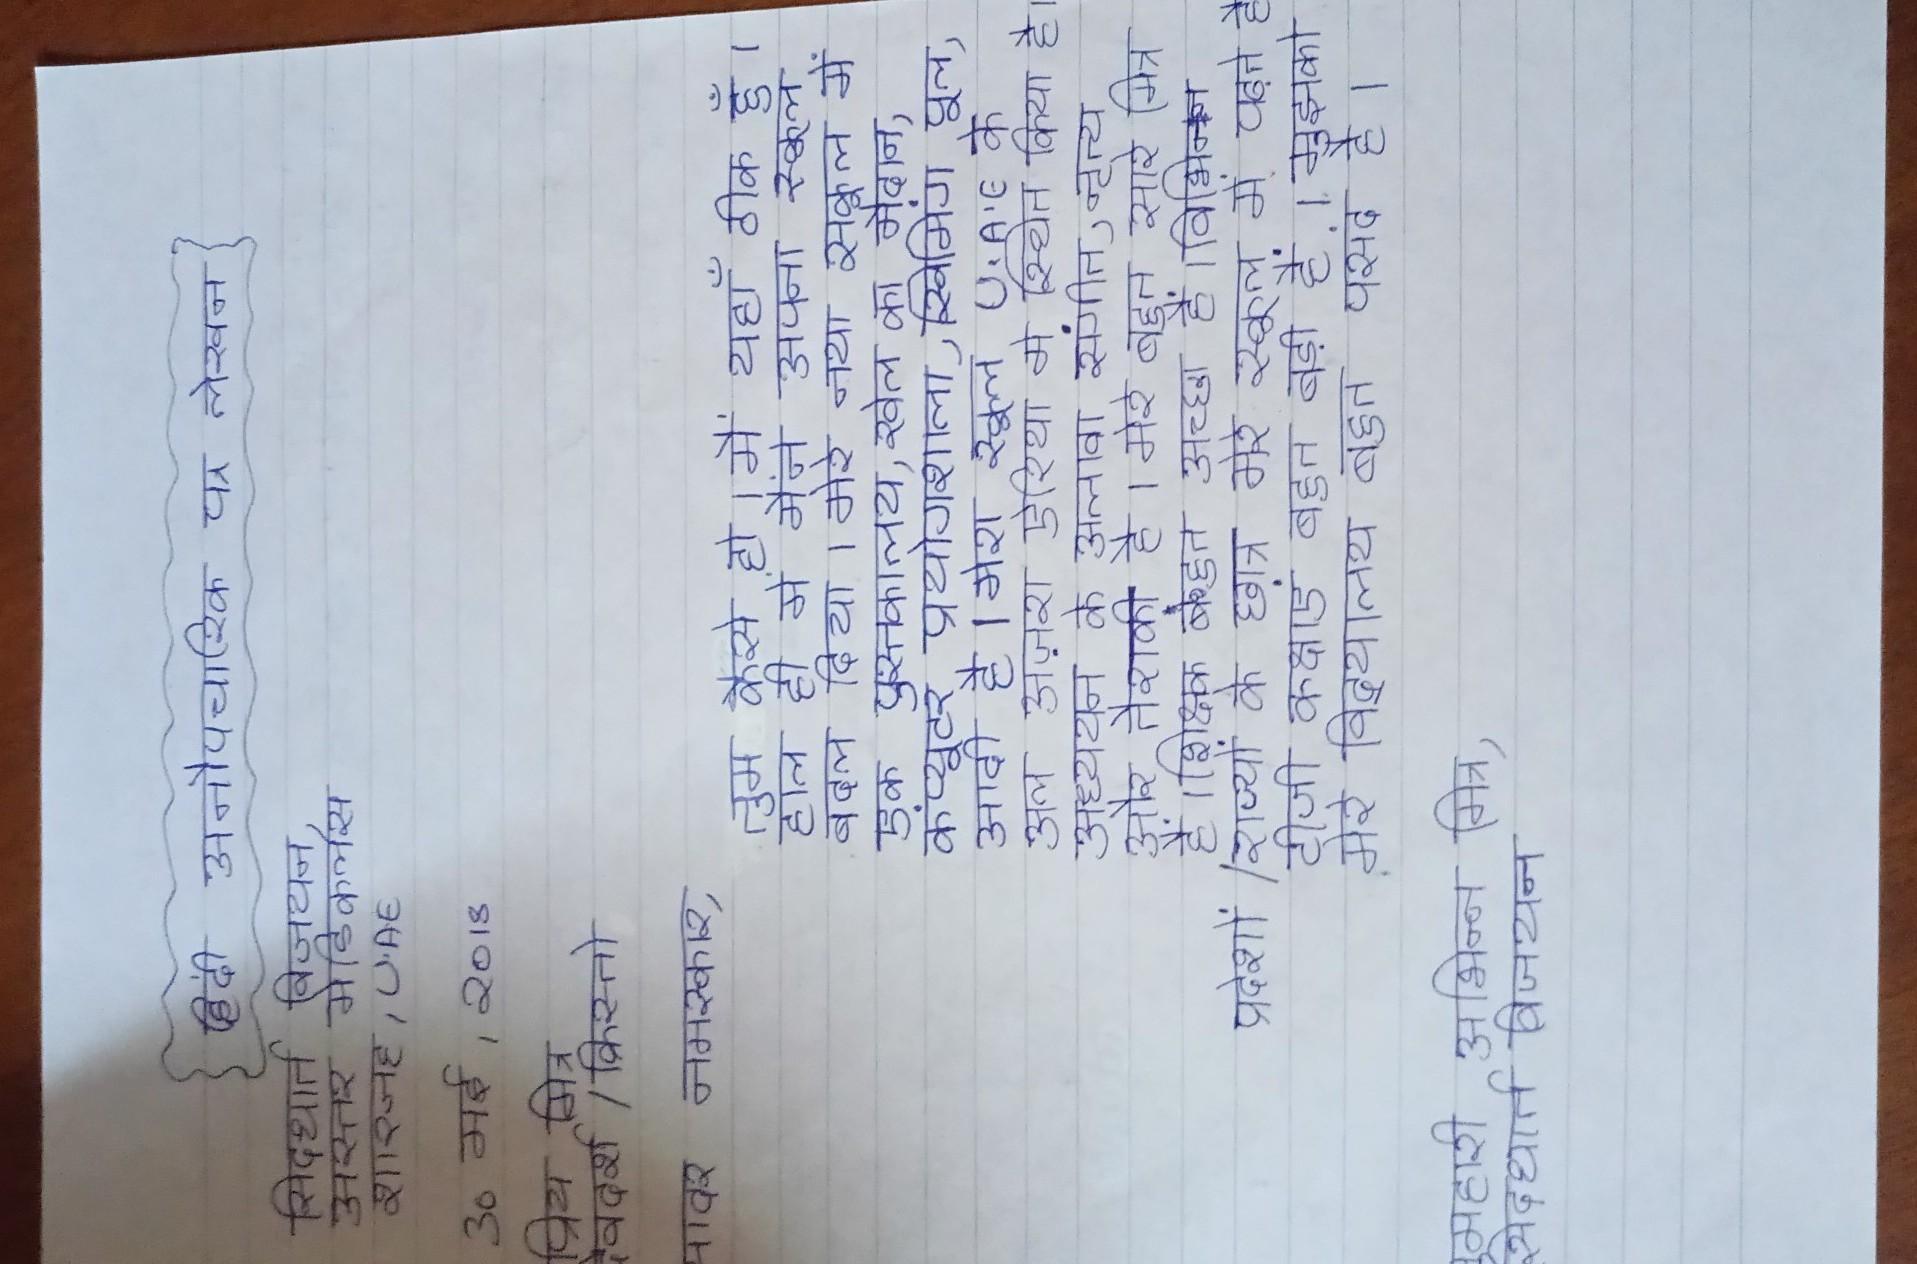 हिंदी अनौपचारिक पत्र लेखन
सिदधार्त विजयन,
अस्तर मेडिकल्स
शारजह, U.AE
30 मई, 2018
प्रिय मित्र
देवदर्श / क्रिस्तो
नमस्कार,
तुम कैसे हो । मैं यहाँ ठीक हुँ ।
हाल ही मे मेने अपना स्कूल
बदल दिया । मेरे नया सकूल में
एक पुस्तकालय, खेल का मेदान,
कंप्यूटर प्रयोगशाला, स्विमिंग पूल,
आदी है । मेरा स्कूल U.A.E के
अल अज़रा एरिया मे स्थित किया है।
अध्ययन के अलावा संगीत, नृत्य
और तेराकी है । मेरे बहुत सारे मित्र
हैं । शिक्षक बहुत अच्छा है । विभिन्न
प्रदेशों / राज्यों के छात्र मेरे स्कूल में पढ़ते है
टीजी कक्षाए बहुत बड़ी हैं । मुझको
मेरे विद्यालय बहुत पसद है ।
तुमहारी अभिन्न मित्र,
सिदधार्त विजयन